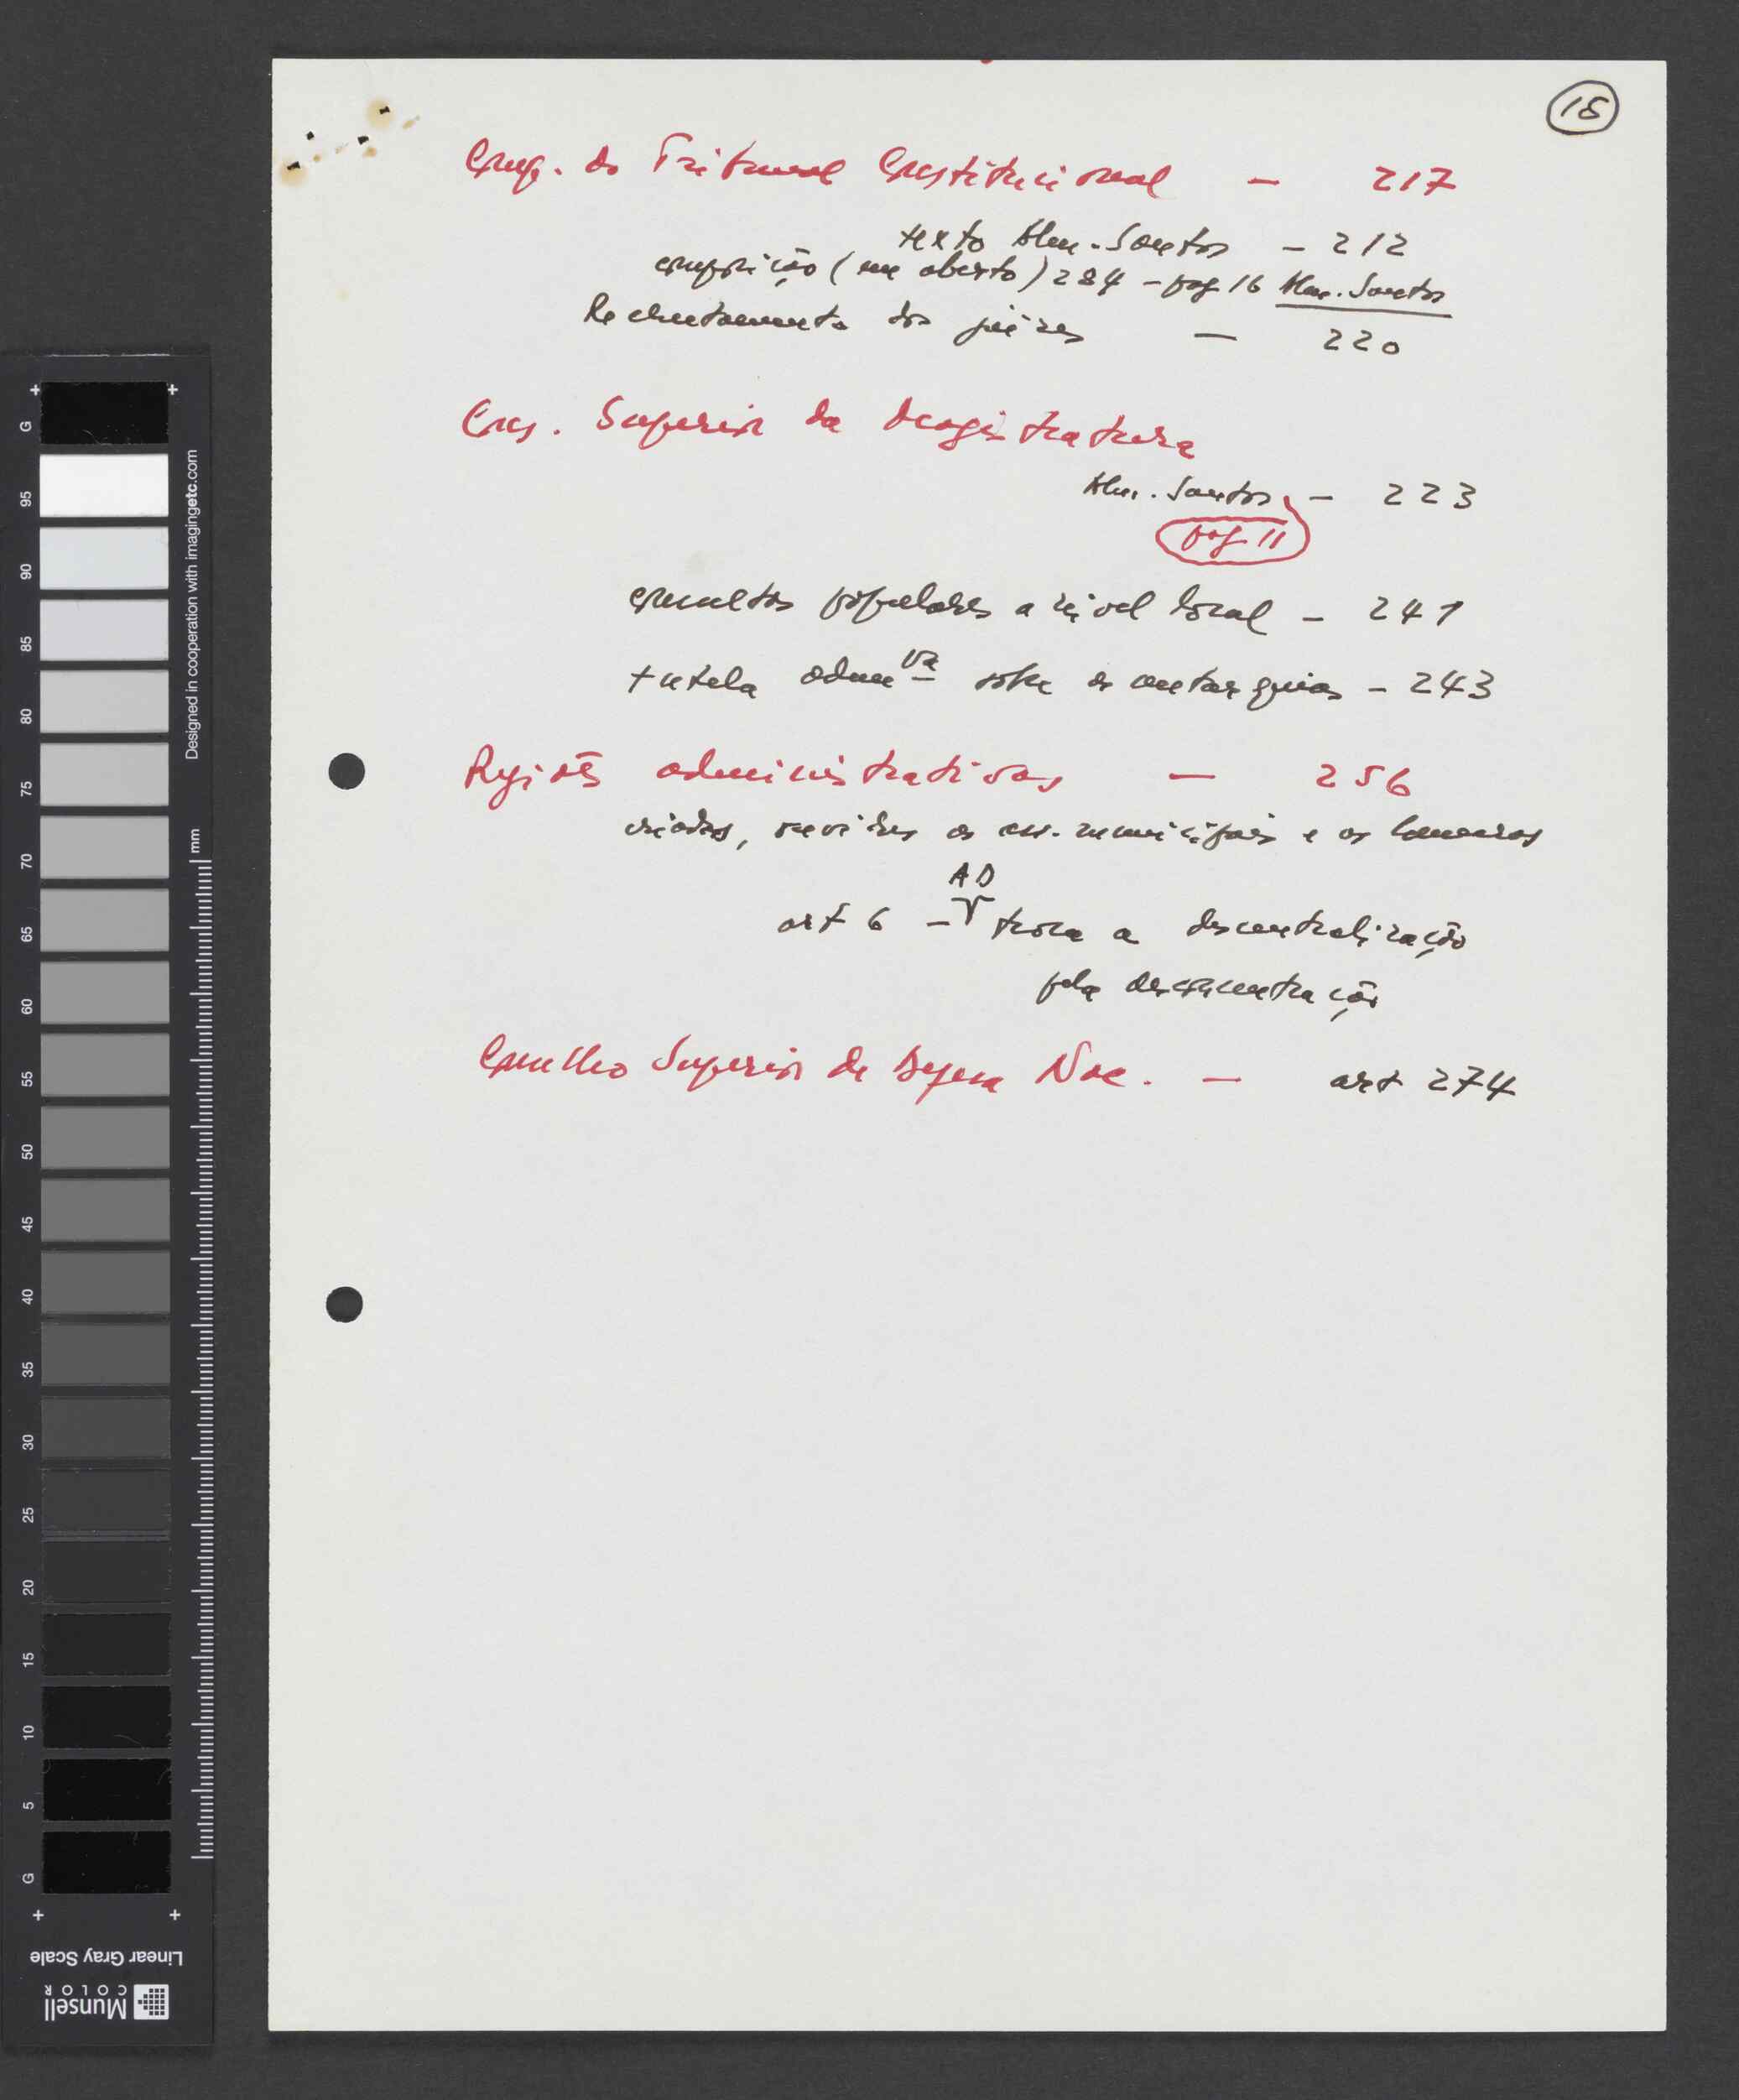 18
Comp. do Tribunal Constitucional — 217
texto Alm. Santos — 212
composição (em aberto) 284 — pag 16 Alm. Santos
Recrutamento dos juízes — 220
Cons. Superior da Magistratura
Alm. Santos — 223
pag 11
consultas populares a nível local — 241
tutela admva sobre as autarquias — 243
Regiões administrativas — 256
criadas, ouvidas as ass. municipais e as Camaras
AD
art 6 — troca a descentralização
pela desconcentração
Conselho Superior de Defesa Nac. — art 274
G 95 90 85 80 75 70 65 60 55 50 45 40 35 30 25 20 15 10 5 G
Designed in cooperation with imagingetc.com
mm
Linear Gray Scale
Munsell
COLOR